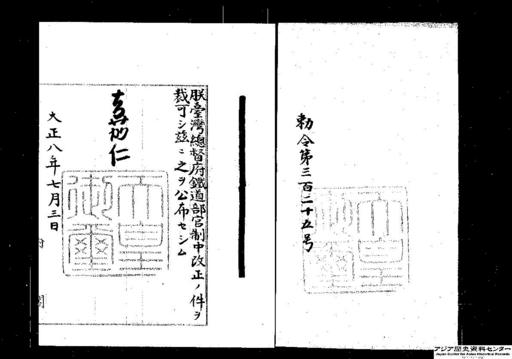 勅令第三百二十五号
朕臺灣總督府鐵道部官制中改正ノ件ヲ
裁可シ茲ニ之ヲ公布セシム
嘉仁
天皇御璽
大正八年七月三日
アジア歴史資料センター
Japan Center for Asian Historical Records